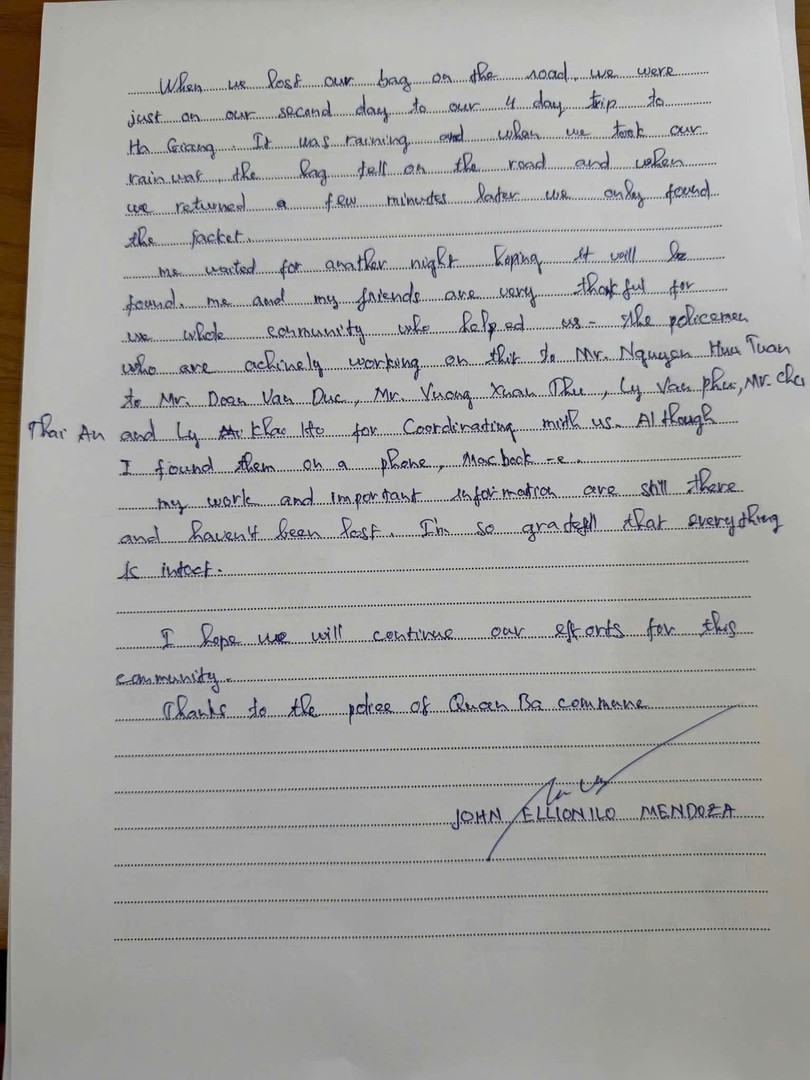 When we lost our bag on the road, we were
just on our second day to our 4 day trip to
Ha Giang. It was raining and when we took our
rain war, the bag fell on the road and when
we returned a few minutes later we only found
the jacket.
me waited for another night hoping it will be
found. me and my friends are very thakful for
we whole community who helped us - the policemen
who are achinely working on this to Mr. Nguyen Huu Tuan
to Mr. Doan Van Duc, Mr. Vuong Xuan Thu, Ly Van phu, Mr. Chu
Thai An and Ly Khai Ho for Coordinating with us. Although
I found them on a phone, Macbook -e.
my work and important information are still there
and haven't been lost. I'm so gratefll that everything
is intact.
I hope we will continue our efforts for this
community.
Thanks to the police of Quan Ba commune
JOHN ELLIONILO MENDOZA